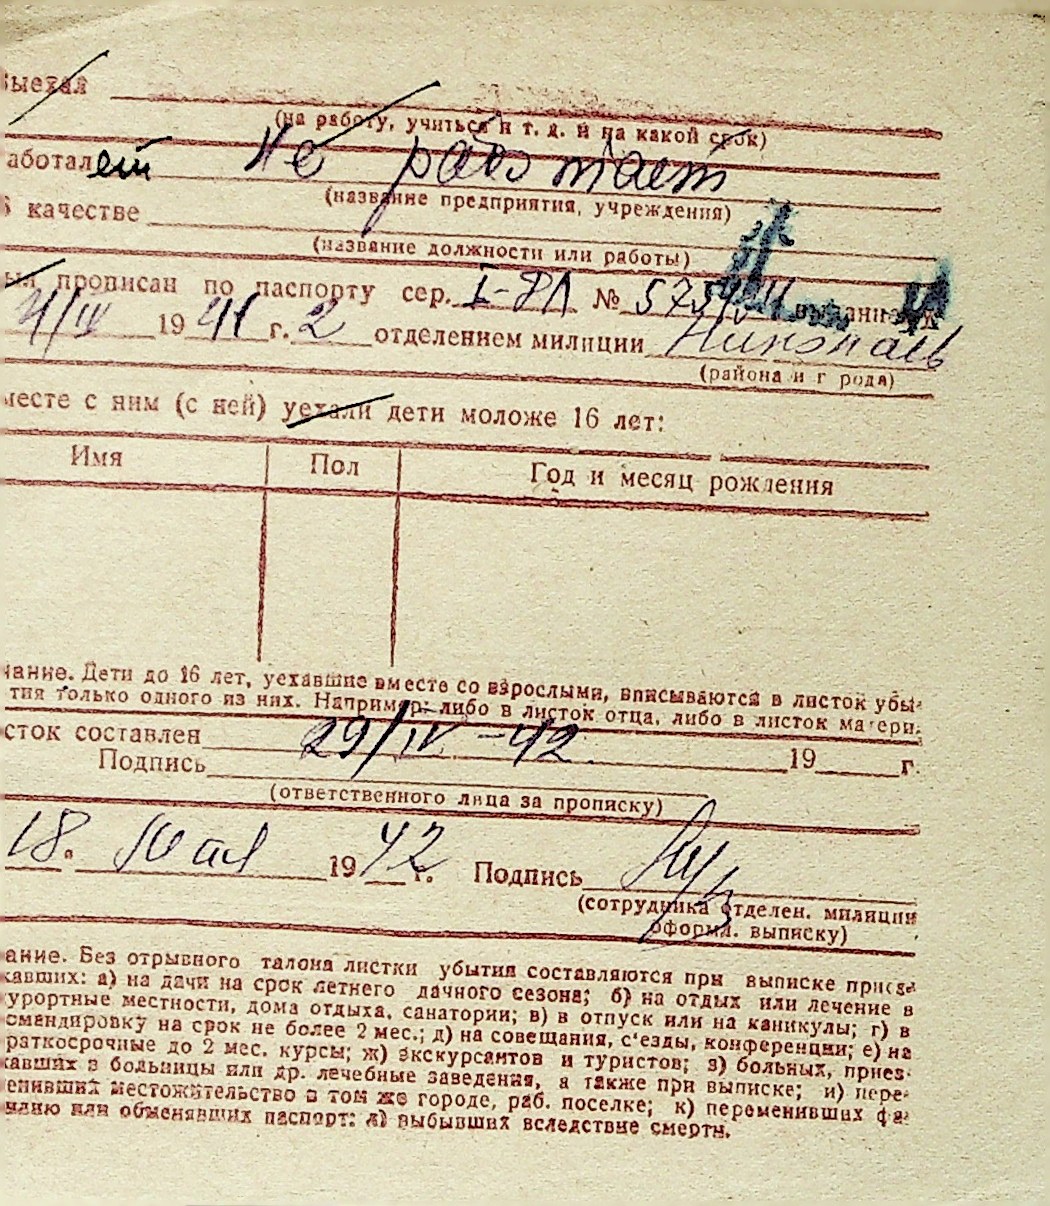 Выехал
(на работу, учиться и т. д. и на какой срок)
аботал ет Не работает
(название предприятия, учреждения)
В качестве
(название должности или работы)
ыл прописан по паспорту сер. I-РЛ №
4/IV 1941 г. 2 отделением милиции Николаев
(района и г рода)
месте с ним (с ней) уехали дети моложе 16 лет:
Имя Пол Год и месяц рождения
чание. Дети до 16 лет, уехавшие вместе со взрослыми, вписываются в листок убы-
тия только одного из них. Например: либо в листок отца, либо в листок матери.
сток составлен 29/IV-42 19 г.
Подпись
(ответственного лица за прописку)
18. Мая 1942 г. Подпись
(сотрудника отделен. милиции
оформл. выписку)
ание. Без отрывного талона листки убытия составляются при выписке приез-
жавших: а) на дачи на срок летнего дачного сезона; б) на отдых или лечение в
урортные местности, дома отдыха, санатории; в) в отпуск или на каникулы; г) в
омандировку на срок не более 2 мес.; д) на совещания, с'езды, конференции; е) на
раткосрочные до 2 мес. курсы; ж) экскурсантов и туристов; з) больных, приез-
жавших в больницы или др. лечебные заведения, а также при выписке; и) пере-
енивших местожительство в том же городе, раб. поселке; к) переменивших фа-
милию или обменявших паспорт; л) выбывших вследствие смерти.